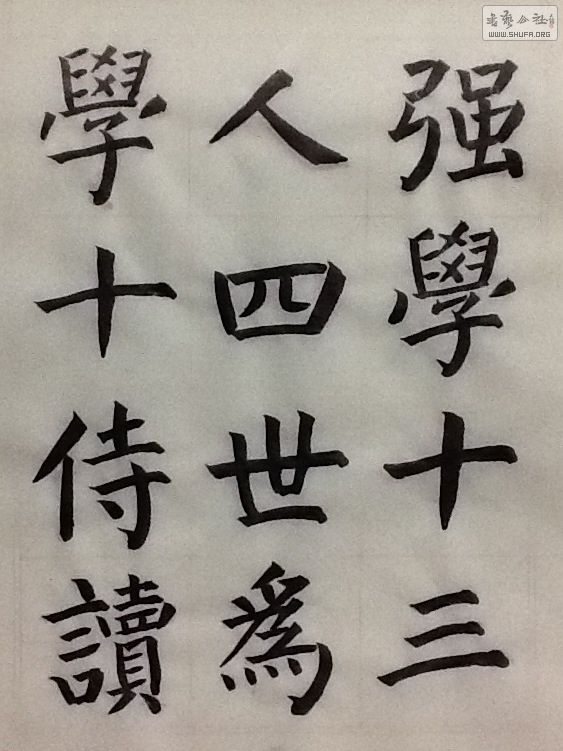 强學十三
人四世為
學十侍讀
書藝公社
WWW.SHUFA.ORG